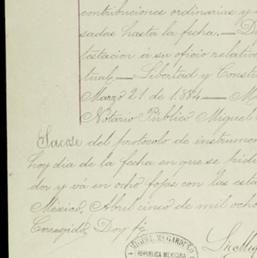 contribuciones ordinarias y
sadas hasta la fecha.— De
testacion á su oficio relativ
tual.— Libertad y Constit
Marzo 21 de 1884.— M
Notario Público Miguel
Sacose del protocolo de instrumen
hoy dia de la fecha en que se pide
dor y va en ocho fojas con las esta
México, Abril cinco de mil ocho
Corregido. Doy fé
Lic. Mig
MIGUEL M. GARDUÑO
REPÚBLICA MEXICANA